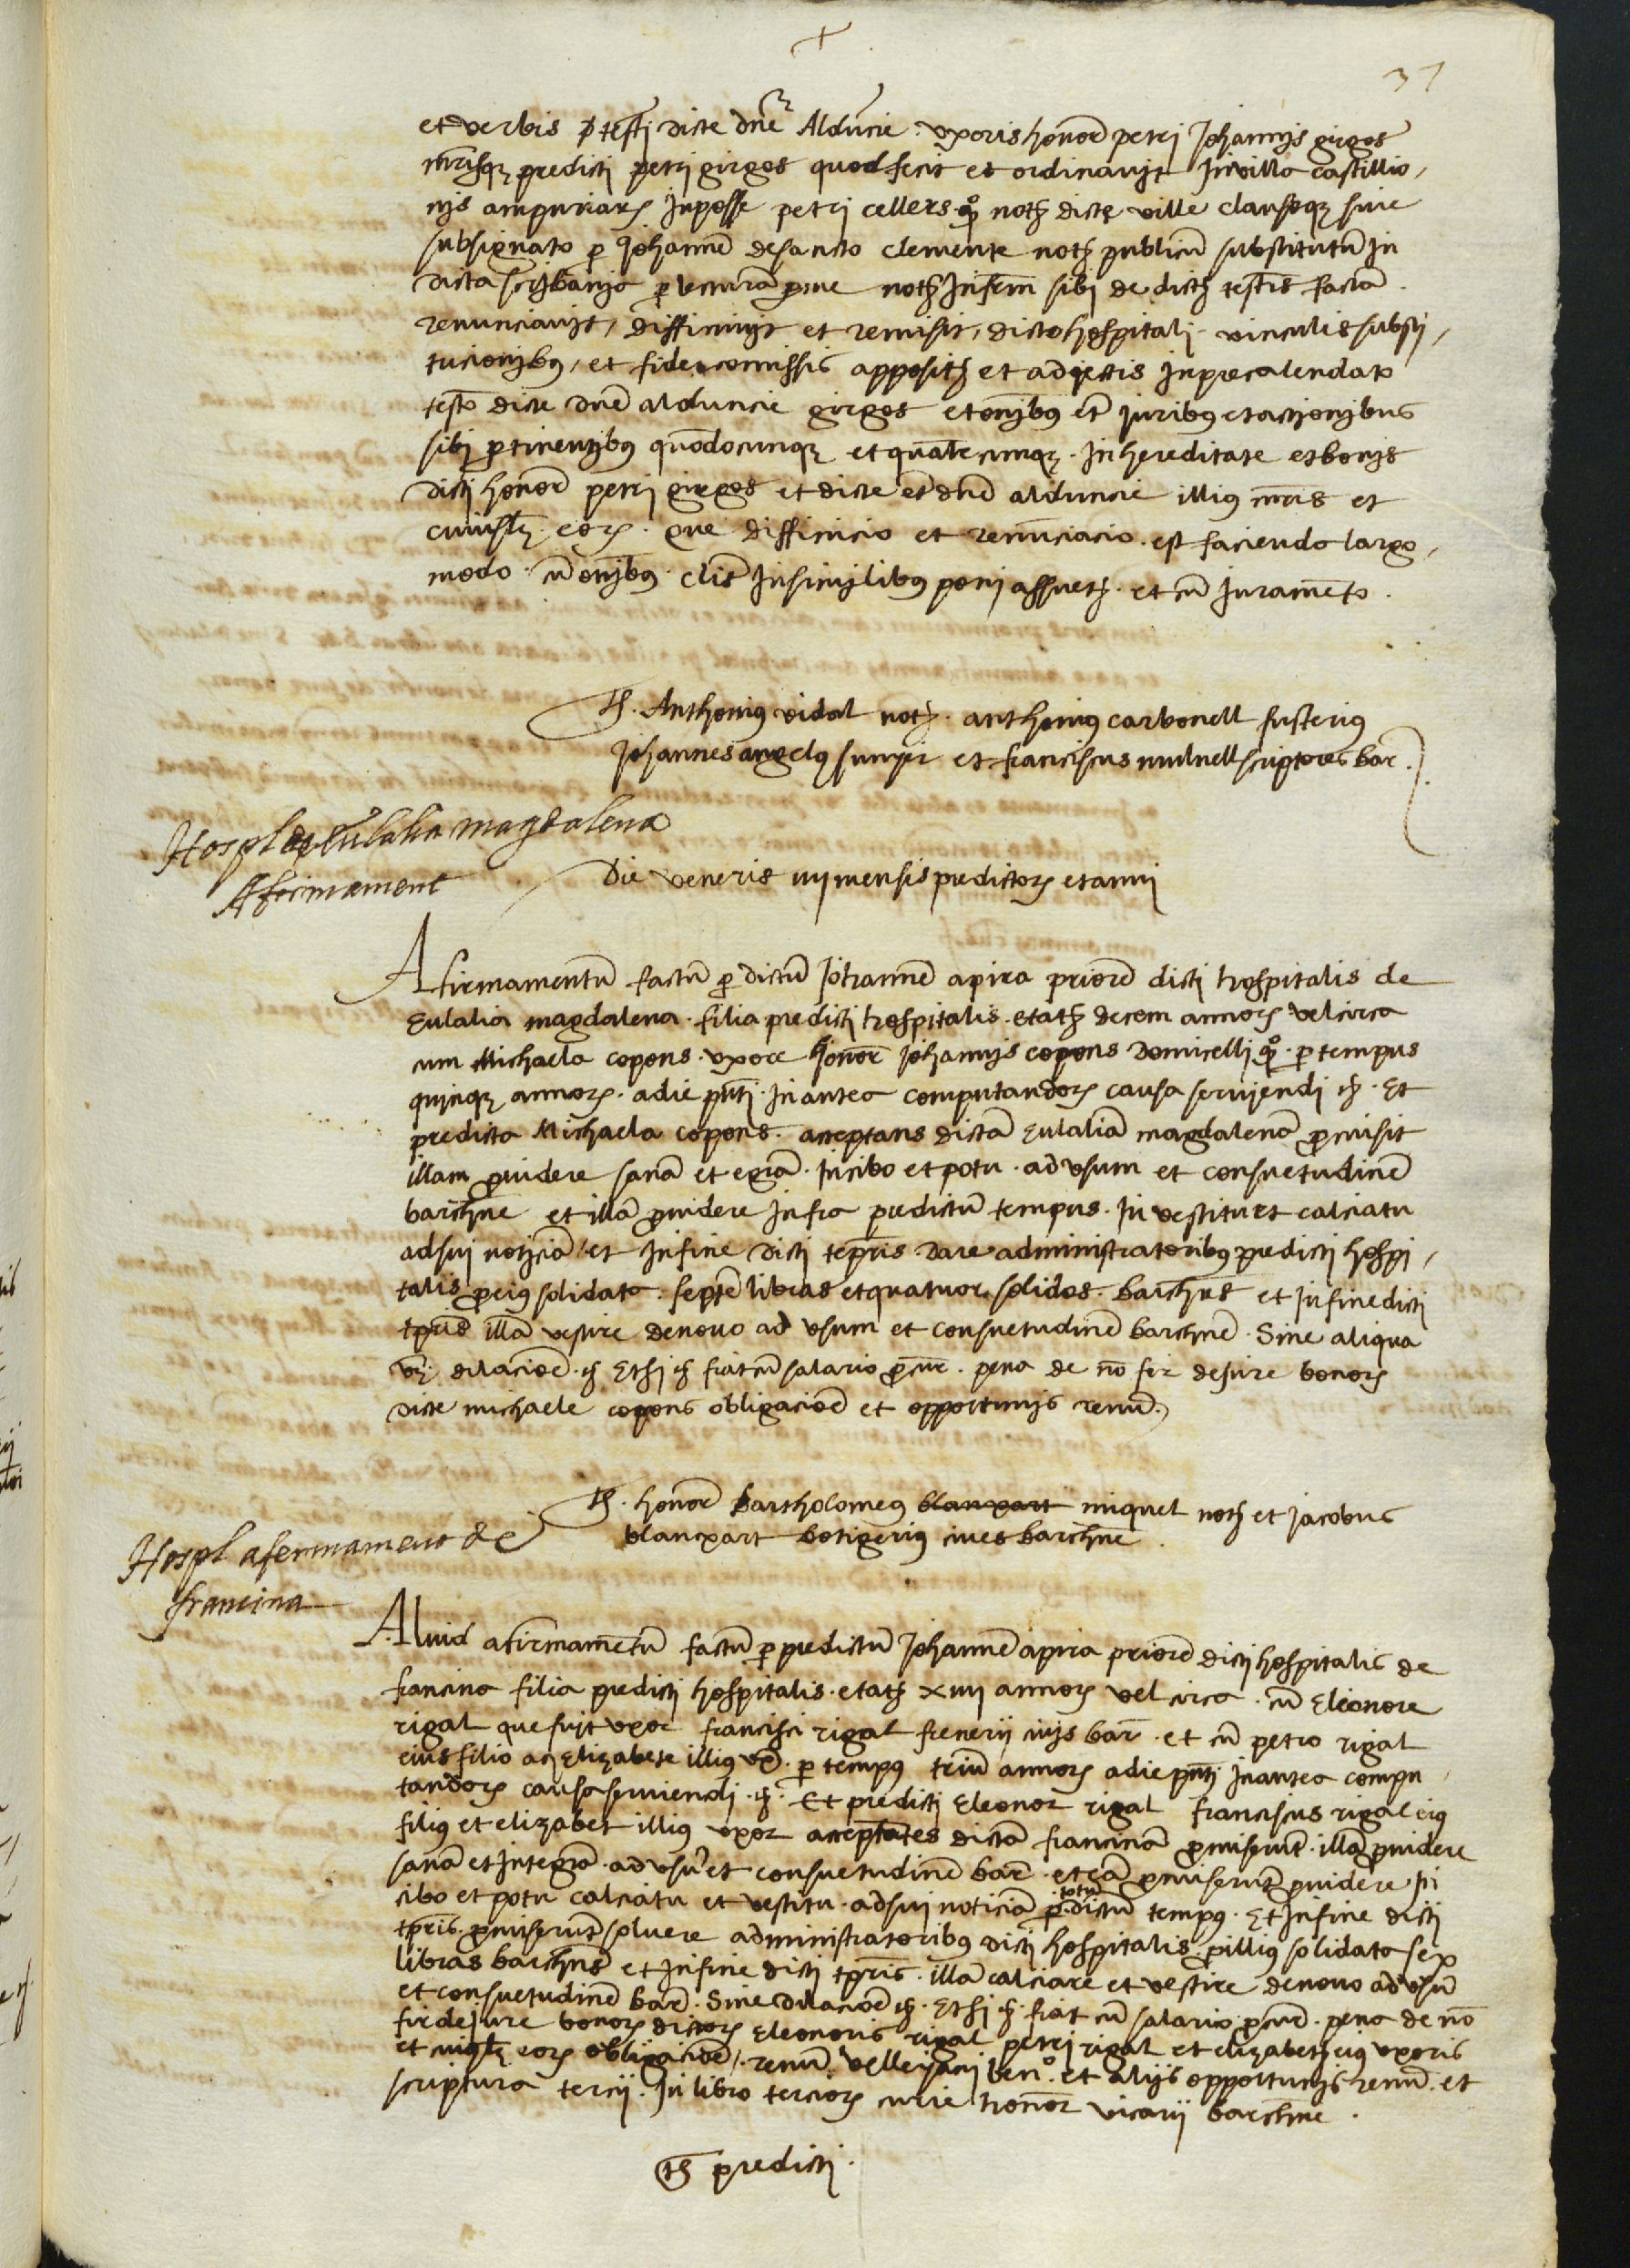 37
et verbis testi dicte dne Alduncie uxoris honor petri Johannis girgos
mrisqz predicti petri girgos quod fecit et ordinavit In villa castillio
nis ampuriarz In posse petri cellers qo noth dicte ville clausoqz sive
subsignato p Johanne de sancto clemente noth publicu substitutu in
dicta scribania p lectura p me noth Infrm sibi de dicth testis facta.
renunciavit, diffinivit et remisit, dicto hospitali vinculis substi
tucionibus, et fideicomissis apposith et adiectis In precalendato
testo dicte dne alduncie girgos et omibus et iuribus et actionibus
sibi ptinentibus quodocunqz et qualecunqz. In hereditate et bonis
dicti honor petri girgos et dicte et dne alduncie illius mris et
cuiuslz eorz. que difficicio et renunciacio est facienda largo
modo. cu omibus clis In similibus poni assueth. et cu Iuramento.
Ts. Anthonius vidal noth. anthonius carbonell fusterius
Johannes angelus et franciscus mulnell scriptores bar.
Hospl de Eulalia magdalena
Afermament
Die veneris iiij mensis predictorz et anni
Afirmamentu factu p dictu Johanne apira priore dicti hospitalis de
Eulalia magdalena. filia predicti hospitalis. etath decem annorz vel circa
cum Michaela copons. uxore honor Johannis copons domicelli qo. p tempus
quinqz annorz. a die pnti In antea computandorz causa serviendi &. Et
predicta Michaela copons. acceptans dicta Eulalia magdalena pmisit
illam pvidere sana et egra. In cibo et potu. ad usum et consuetudine
barchne et illa pvidere Infra predictu tempus. In vestitu et calciatu
ad sui noticia et In fine dicti tpris dare administratoribus predicti hospi
talis p eius solidata. septe libras et quatuor solidos. barchns et In fine dicti
tpris illa vestire de novo ad usum et consuetudine barchne. Sine aliqua
vz. dilacioe & Et si & fiat cu salario pcur. pena de no fir de iure bonorz
dicte michaele copons obligacioe et opportunis renu.
Ts. honor bartholomeus blanxart miquel noth et Jacobus
blanxart botigerius cives barchne.
Hospl afermament de
francina
Aliud afirmamentu factu p predictu Johanne apira priore dicti hospitalis de
francina filia predicti hospitalis. etath xiiij annorz vel circa. cu Elionore
rigal que fuit uxor francisci rigal frenerij civis bar. et cu petro rigal
eius filio ac Elizabete illius ux. p tempus triu annorz a die pnti In antea compu
tandorz causa serviendi &. Et predicti Eleonor rigal franciscus rigal eius
filius et elizabet illius uxor acceptates dicta francina pmiserut illa pvidere
sana et Integra. ad usu et consuetudine bar. et ea pmiserut pvidere In
cibo et potu calciatu et vestitu. ad sui noticia p totu dictu tempus. Et In fine dicti
tpris. pmiserut solvere administratoribus dicti hospitalis p illius solidata sex
libras barchns et In fine dicti tpris. illa calciare et vestire de novo ad usu
et consuetudine bar. Sine dilacioe &. Et si &. fiat cu salario pcur. pena de no
fir de iure bonorz dictorz Eleonoris rigal petri rigal et elizabeth eius uxoris
et cuiuslz eorz obligacioe. renu. velleyani ben. et alijs opportunis renu. et
scriptura tercij. In libro terciorz curie honor vicarij barchne.
Ts predicti.